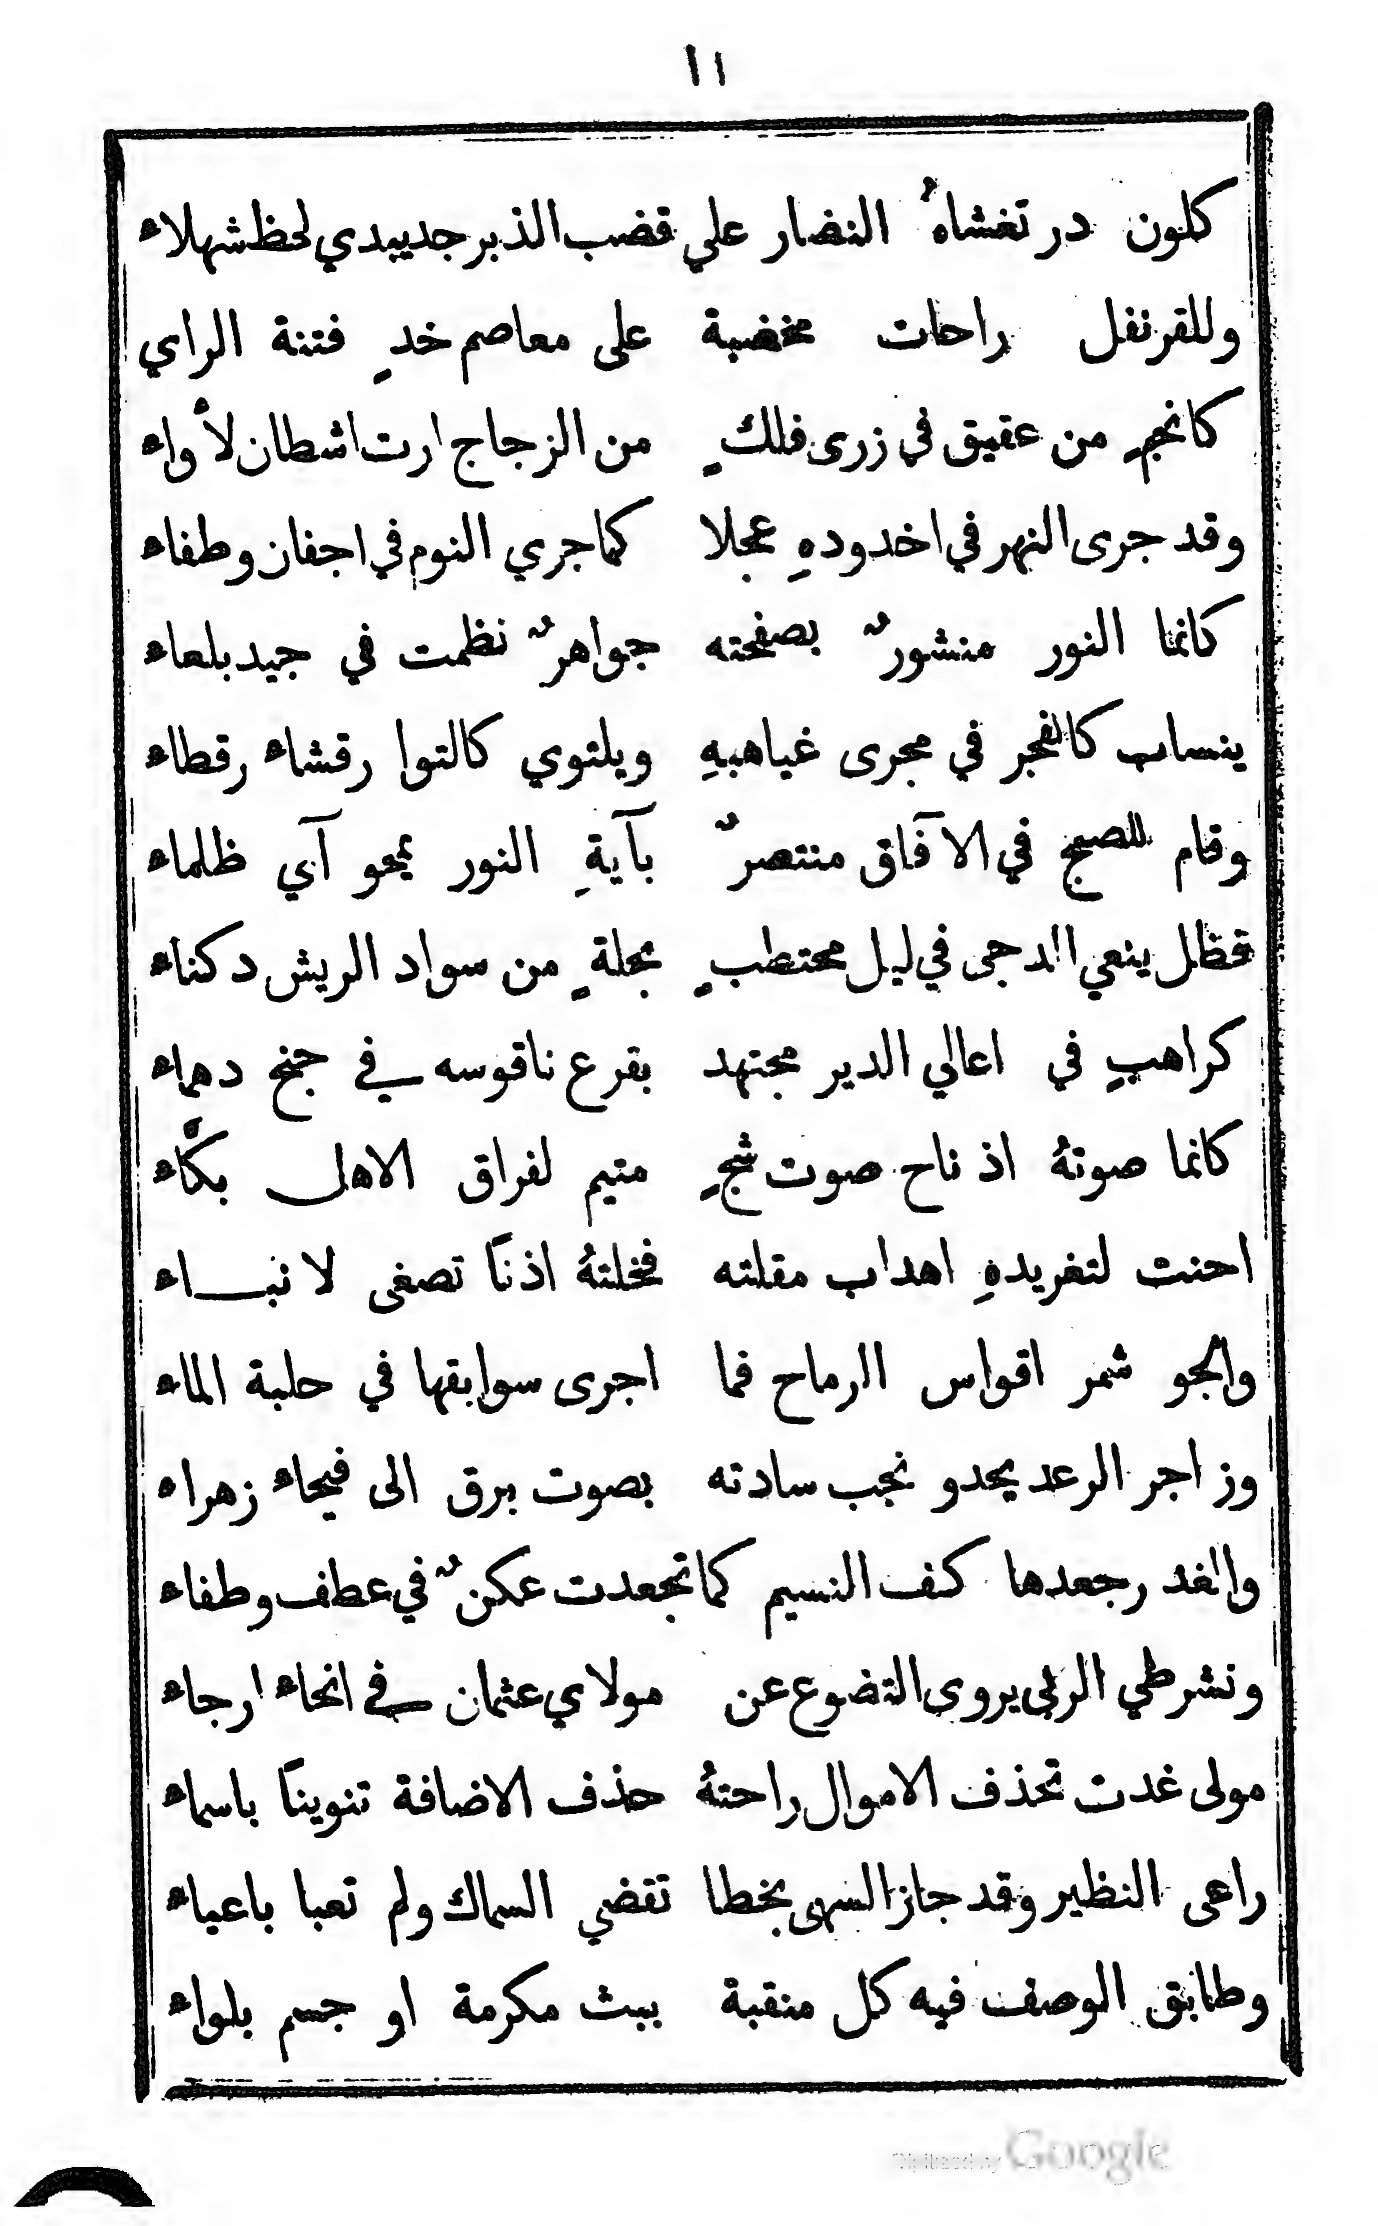 ١١
كلون در تغشاهُ النضار علي قضب الذبرجد يبدي لحظ شهلاء
وللقرنفل راحات مخضبة على معاصم خدٍ فتنة الراي
كانجمٍ من عقيق في زرى فلكٍ من الزجاج ارت اشطان لأواء
وقد جرى النهر في اخدودهِ عجلا كما جري النوم في اجفان وطفاء
كانما النور منشورٌ بصفحته جواهرٌ نظمت في جيد بلعاء
ينساب كالفجر في مجرى غياهبهِ ويلتوي كالتوا رقشاء رقطاء
وقام للصبح في الآفاق منتصرٌ بآيةِ النور يمحو آي ظلماء
فظل ينعي الدجى في ليل محتطبٍ بحلةٍ من سواد الريش دكناء
كراهبٍ في اعالي الدير مجتهد بقرع ناقوسه في جنح دهماء
كانما صوتهُ اذ ناح صوت شجٍ متيم لفراق الاهل بكَّاء
احنت لتغريدهِ اهداب مقلته فخلتهُ اذنًا تصغى لا نباء
والجو شمر اقواس الرماح فما اجرى سوابقها في حلبة الماء
وزاجر الرعد يحدو نجب سادته بصوت برق الى فيحاء زهراء
والغدر جعدها كف النسيم كما تجعدت عكنٌ في عطف وطفاء
ونشر طي الربى يروى التضوع عن مولاي عثمان في انحاء ارجاء
مولى غدت تحذف الاموال راحتهُ حذف الاضافة تنوينًا باسماء
راعى النظير وقد جاز السهى بخطا تقضي السماك ولم تعبا باعياء
وطابق الوصف فيه كل منقبة ببث مكرمة او جسم بلواء
Digitized by Google